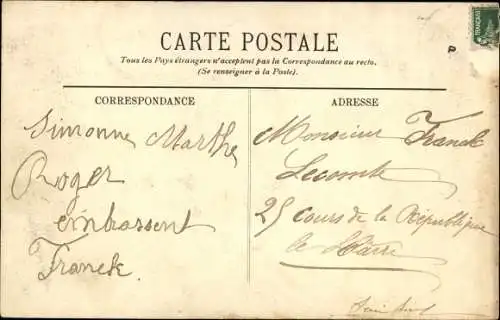 CARTE POSTALE
Tous les Pays étrangers n'acceptent pas la Correspondance au recto.
(Se renseigner à la Poste).
CORRESPONDANCE
Simonne Marthe
Roger
embrassent
Franck.
ADRESSE
Monsieur Franck
Lecomte
25 cours de la République
Le Havre